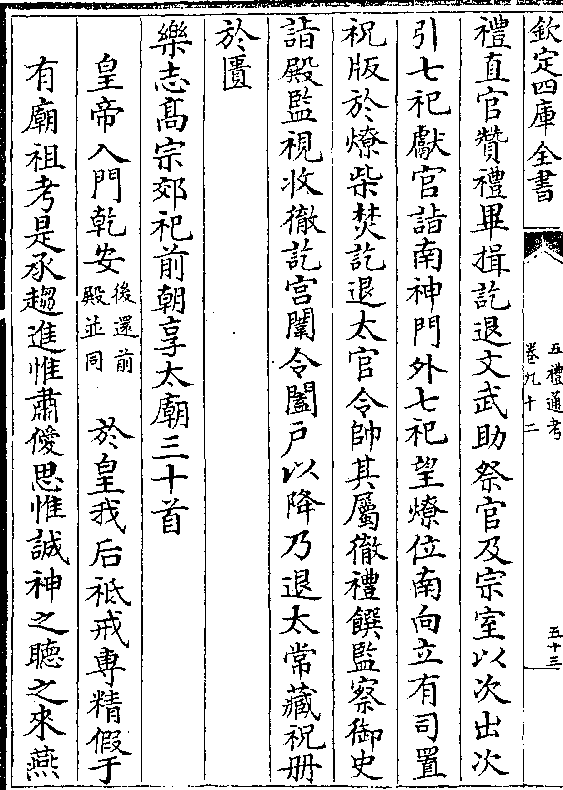 欽定四庫全書
五禮通考
卷九十二
五十三
禮直官贊禮畢揖訖退文武助祭官及宗室以次出次
引七祀獻官詣南神門外七祀望燎位南向立有司置
祝版於燎柴焚訖退太官令帥其屬徹禮饌監察御史
詣殿監視收徹訖宫闈令闔戶以降乃退太常藏祝册
於匱
樂志髙宗郊祀前朝享太廟三十首
皇帝入門乾安
後還前
殿並同
於皇我后祗戒専精假于
有廟祖考是承趨進惟肅僾思惟誠神之聽之來燕